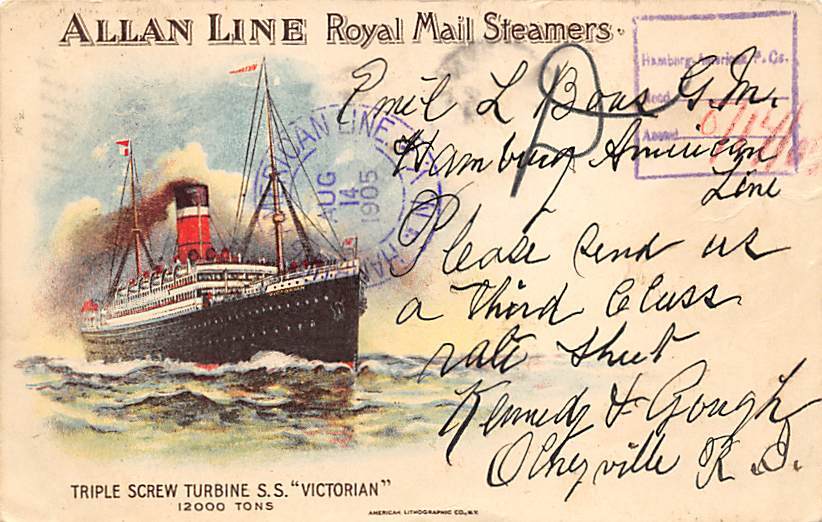 ALLAN LINE Royal Mail Steamers.
Hamburg-American P. Co.
Emil L Boas G.M.
Hamburg American
Line
Please send us
a third Class
rate sheet
Kennedy & Gough
Olneyville R.I.
AUG
14
1905
VICTORIAN
TRIPLE SCREW TURBINE S.S. "VICTORIAN"
12000 TONS
AMERICAN LITHOGRAPHIC CO., N.Y.